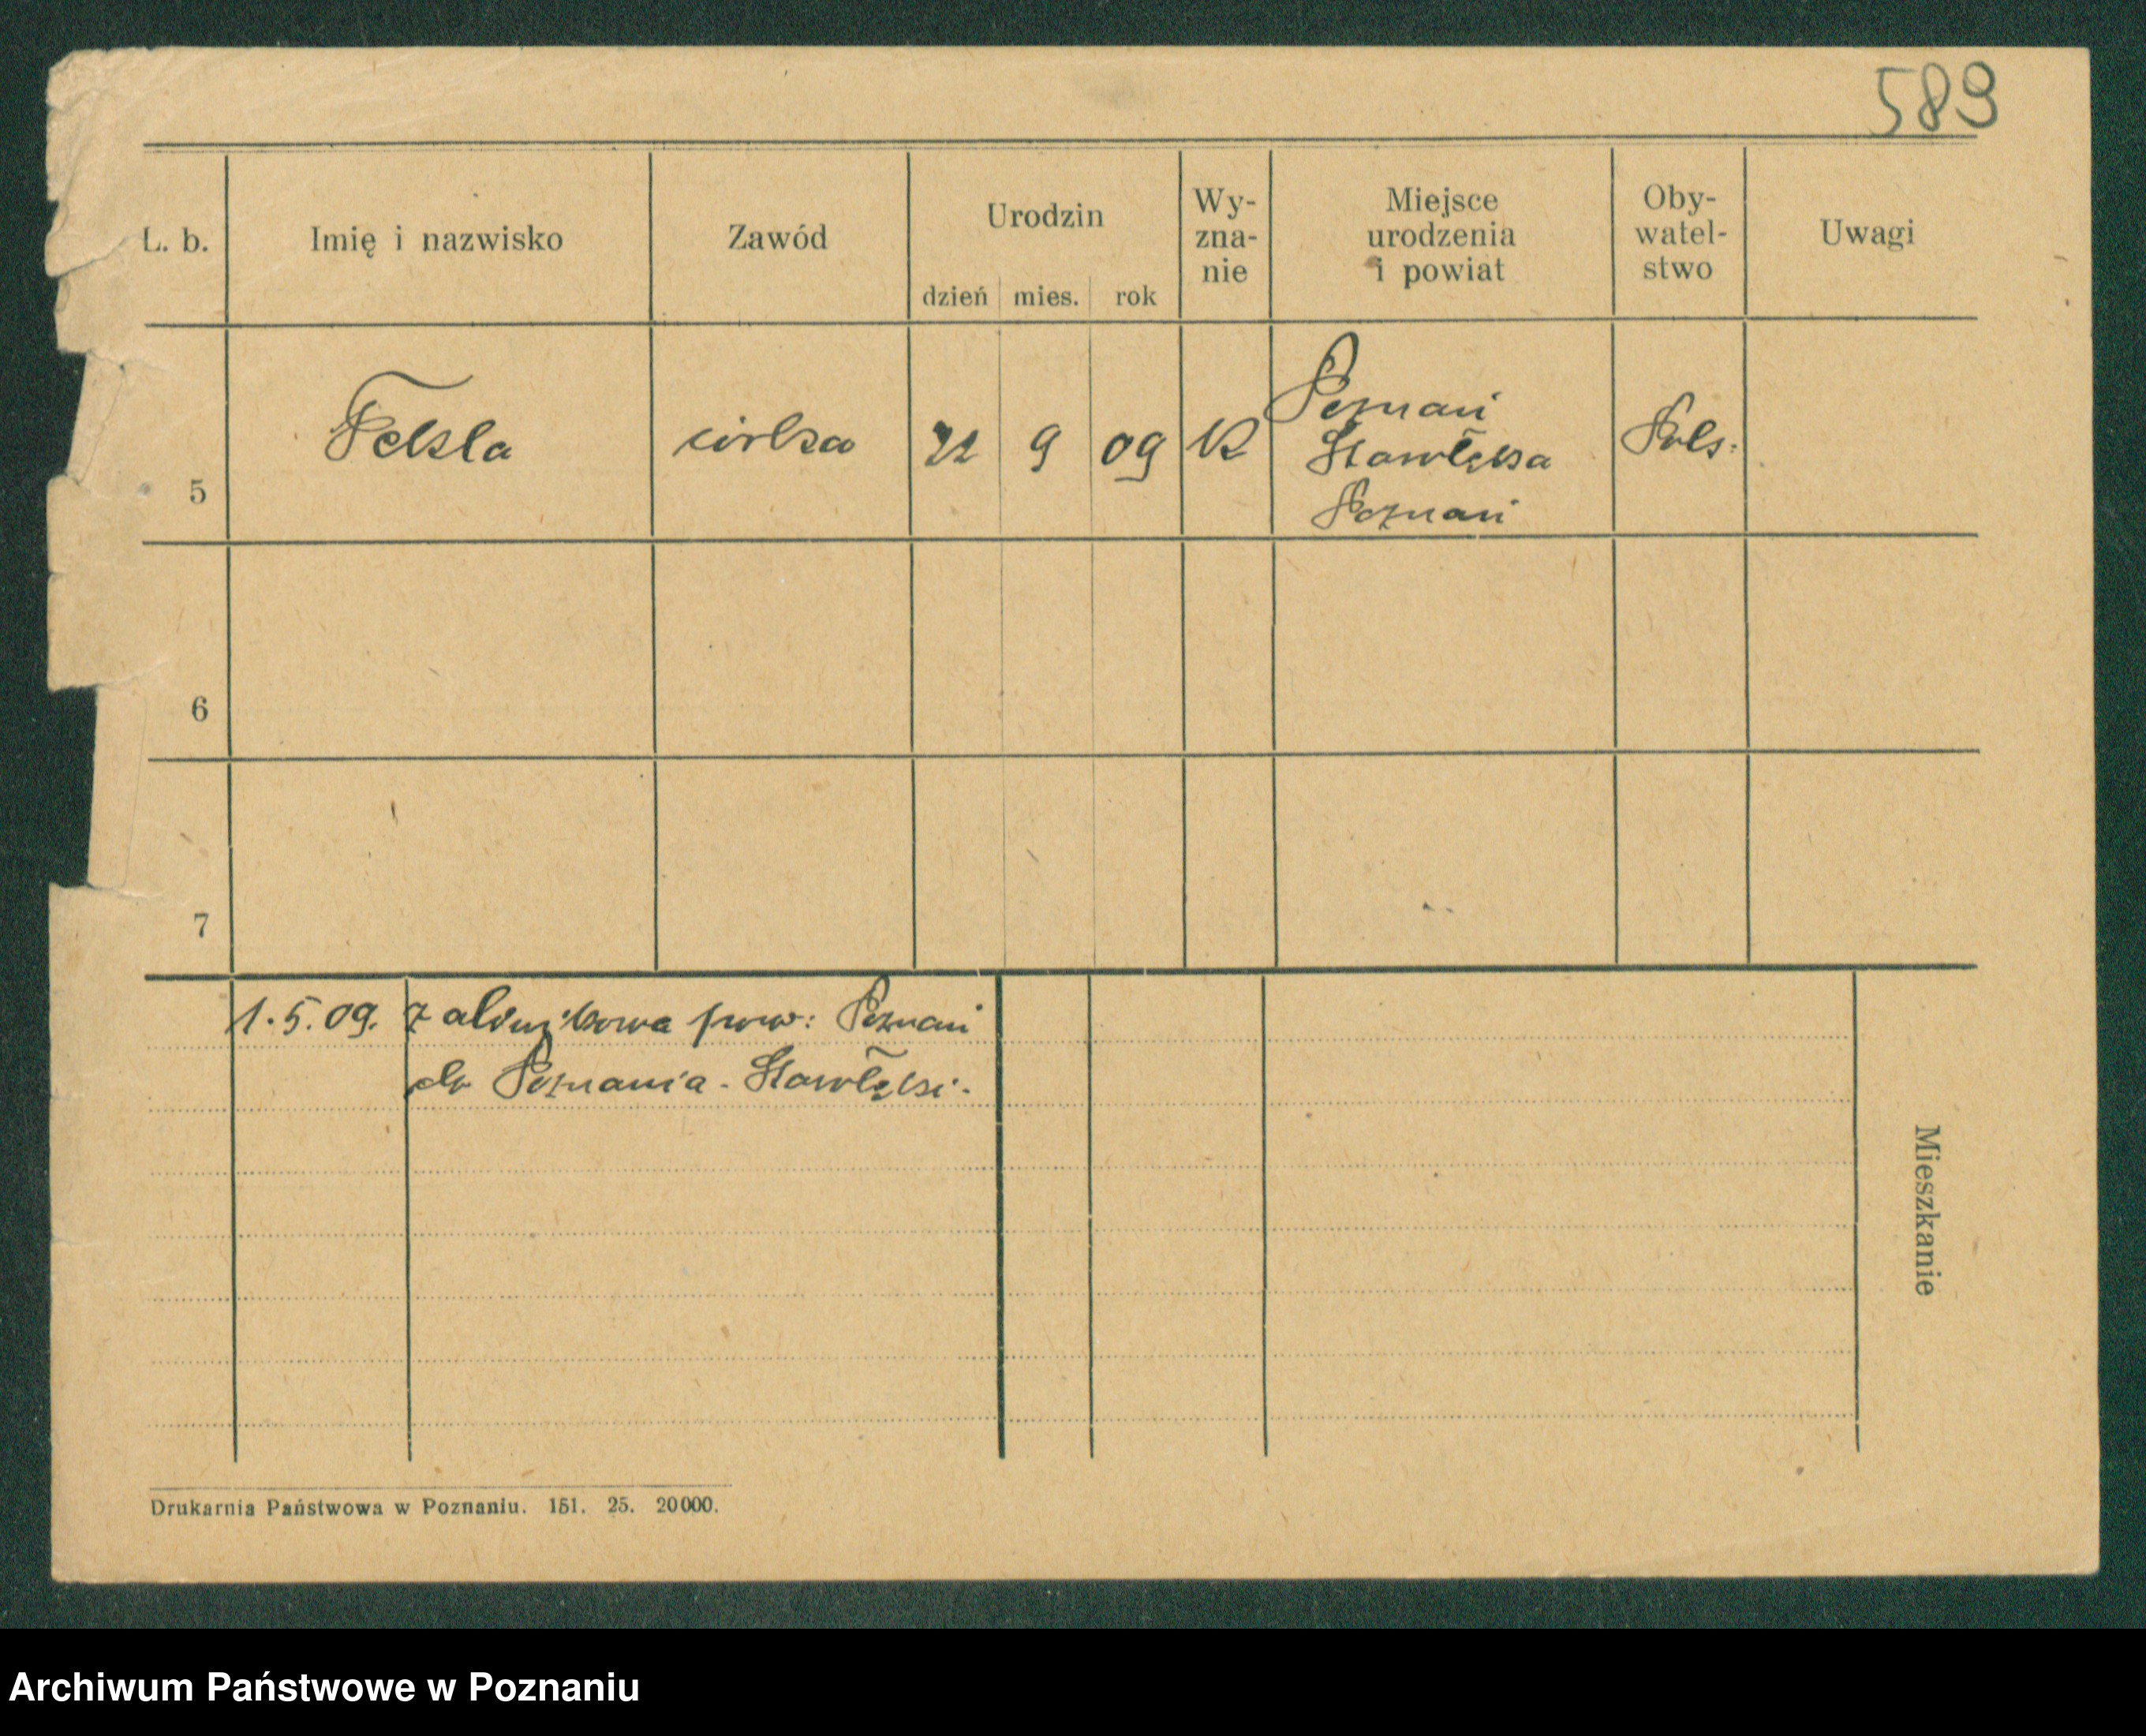 589
L. b.
Imię i nazwisko
Zawód
Urodzin
dzień mies. rok
Wy-
zna-
nie
Miejsce
urodzenia
i powiat
Oby-
watel-
stwo
Uwagi
5 Fekla córka 22 9 09 K Poznań
Starołęka
Poznań
Pols.
6
7
1.5.09. pow: Poznań
do Poznania - Starołęki.
Mieszkanie
Drukarnia Państwowa w Poznaniu. 151. 25. 20000.
Archiwum Państwowe w Poznaniu